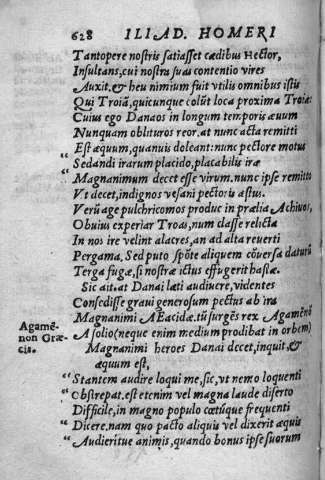 628 ILIAD. HOMERI
Tantopere nostris satiasset cædibus Hector,
Insultans, cui nostra suas contentio vires
Auxit, & heu nimium fuit vtilis omnibus istis
Qui Troiā, quicunque colūt loca proxima Troiæ
Cuius ego Danaos in longum temporis æuum
Nunquam oblituros reor. at nunc acta remitti
Est æquum, quanuis doleant: nunc pectore motus
“Sedandi irarum placido, placabilis iræ
“Magnanimum decet esse virum. nunc ipse remitto
Vt decet, indignos vesani pectoris æstus.
Verū age pulchricomos produc in prælia Achiuos,
Obuius experiar Troas, num classe relicta
In nos ire velint alacres, an ad alta reuerti
Pergama. Sed puto spōte aliquem cōuersa daturū
Terga fugæ, si nostræ ictus effugerit hastæ.
Sic ait. at Danai læti audiuere, videntes
Consedisse graui generosum pectus ab ira
Magnanimi AEacidæ. tū surgēs rex Agamēnō
Agamē-
non Græ-
cis.
A solio (neque enim medium prodibat in orbem)
Magnanimi heroes Danai decet, inquit, &
æquum est,
“Stantem audire loqui me, sic, vt nemo loquenti
“Obstrepat. est etenim vel magna laude diserto
Difficile, in magno populo cœtúque frequenti
“Dicere. nam quo pacto aliquis vel dixerit aquis
“Audieritue animis, quando bonus ipse suorum